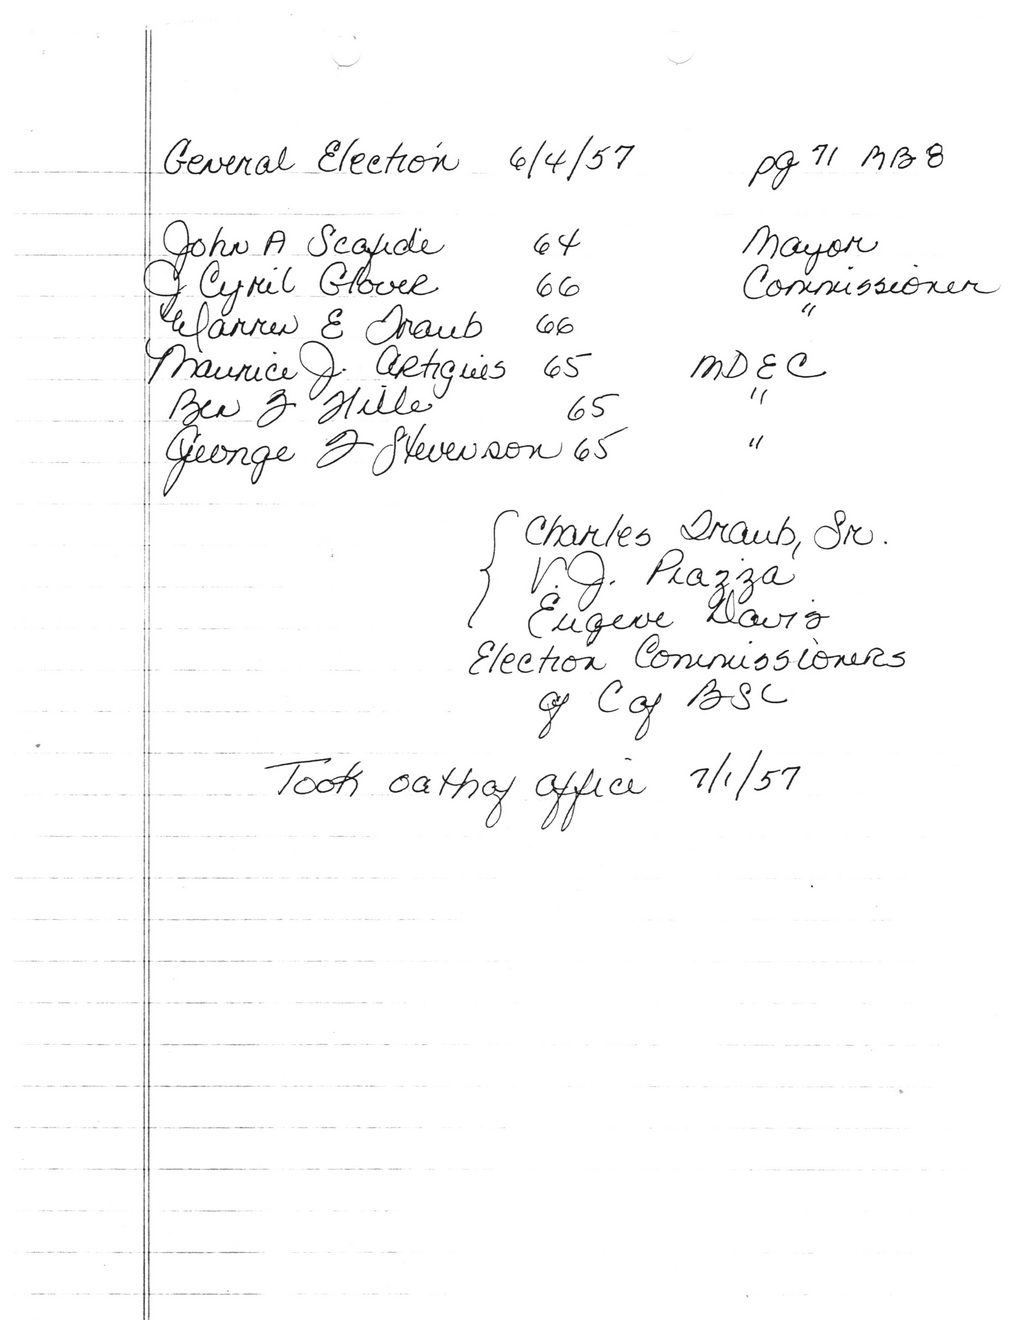 General Election 6/4/57 pg 71 MB 8
John A Scafide 64 Mayor
J Cyril Glover 66 Commissioner
Warren E Traub 66 "
Maurice J. Artigues 65 MDEC
Ben F Hille 65 "
George F Stevenson 65 "
Charles Traub, Sr.
V. J. Piazza
Eugene Davis
Election Commissioners
of C of BSL
Took oath of office 7/1/57